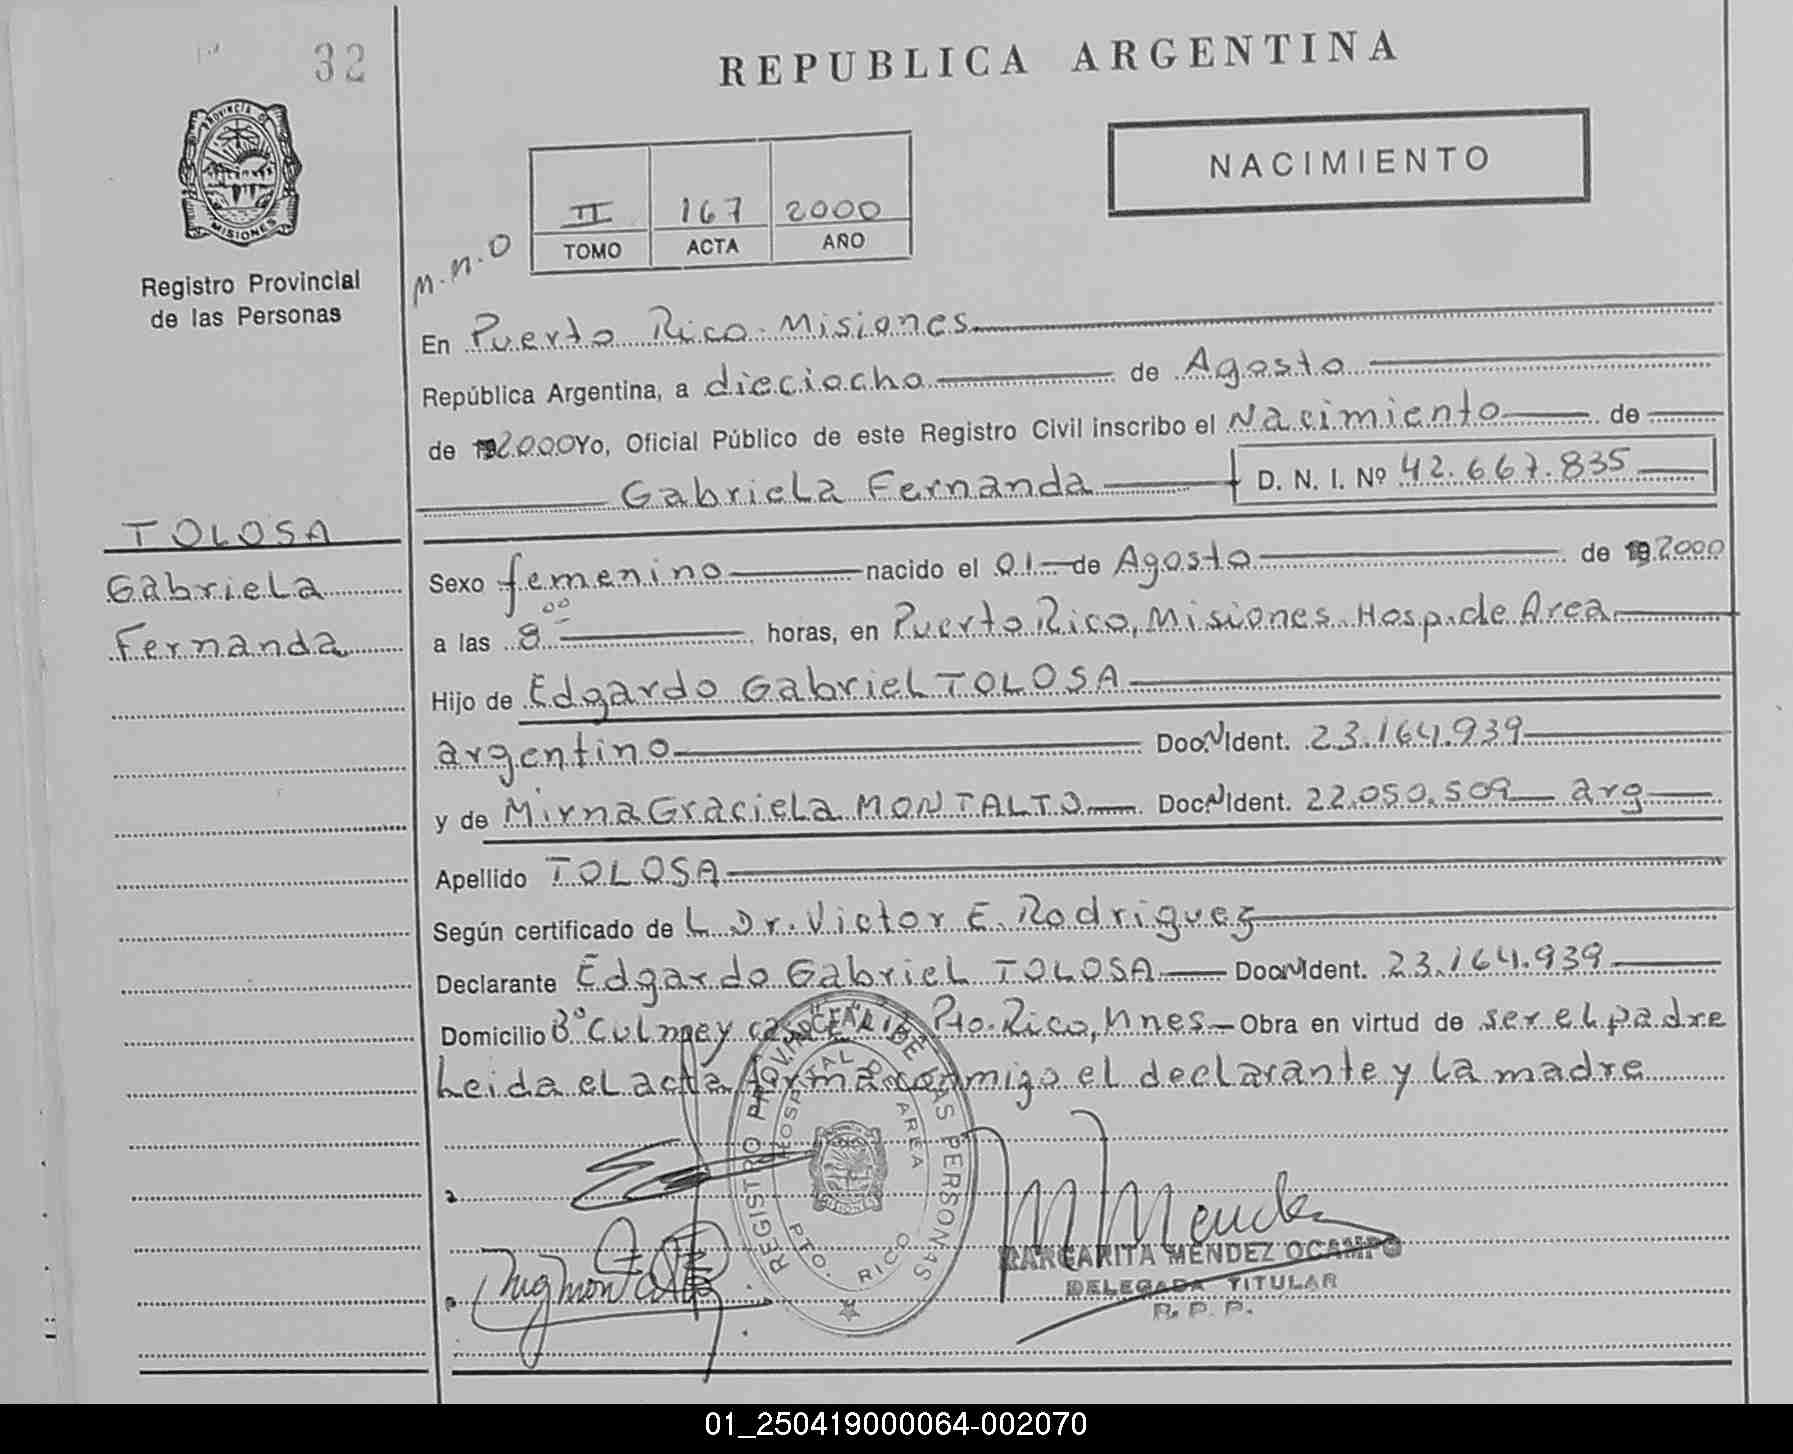 32
REPUBLICA ARGENTINA
PROVINCIA DE
MISIONES
NACIMIENTO
II 167 2000
TOMO ACTA AÑO
M.N.O
Registro Provincial
de las Personas
En Puerto Rico. Misiones
República Argentina, a dieciocho de Agosto
de 192000 Yo, Oficial Público de este Registro Civil inscribo el Nacimiento de
Gabriela Fernanda D. N. I. Nº 42.667.835
TOLOSA
Gabriela
Fernanda
Sexo femenino nacido el 01 de Agosto de 192000
a las 8 00 horas, en Puerto Rico, Misiones. Hosp. de Area
Hijo de Edgardo Gabriel TOLOSA
argentino Doc. N Ident. 23.164.939
y de Mirna Graciela MONTALTO Doc. N Ident. 22.050.509 arg
Apellido TOLOSA
Según certificado de L Dr. Victor E. Rodriguez
Declarante Edgardo Gabriel TOLOSA Doc. N Ident. 23.164.939
Domicilio Bº Culmey Pto. Rico, Mnes Obra en virtud de ser el padre
Leida el acta firma conmigo el declarante y la madre
REGISTRO PROVINCIAL DE LAS PERSONAS
HOSPITAL DE AREA
PTO. RICO
MARGARITA MÉNDEZ OCAMPO
DELEGADA TITULAR
R. P. P.
01_250419000064-002070